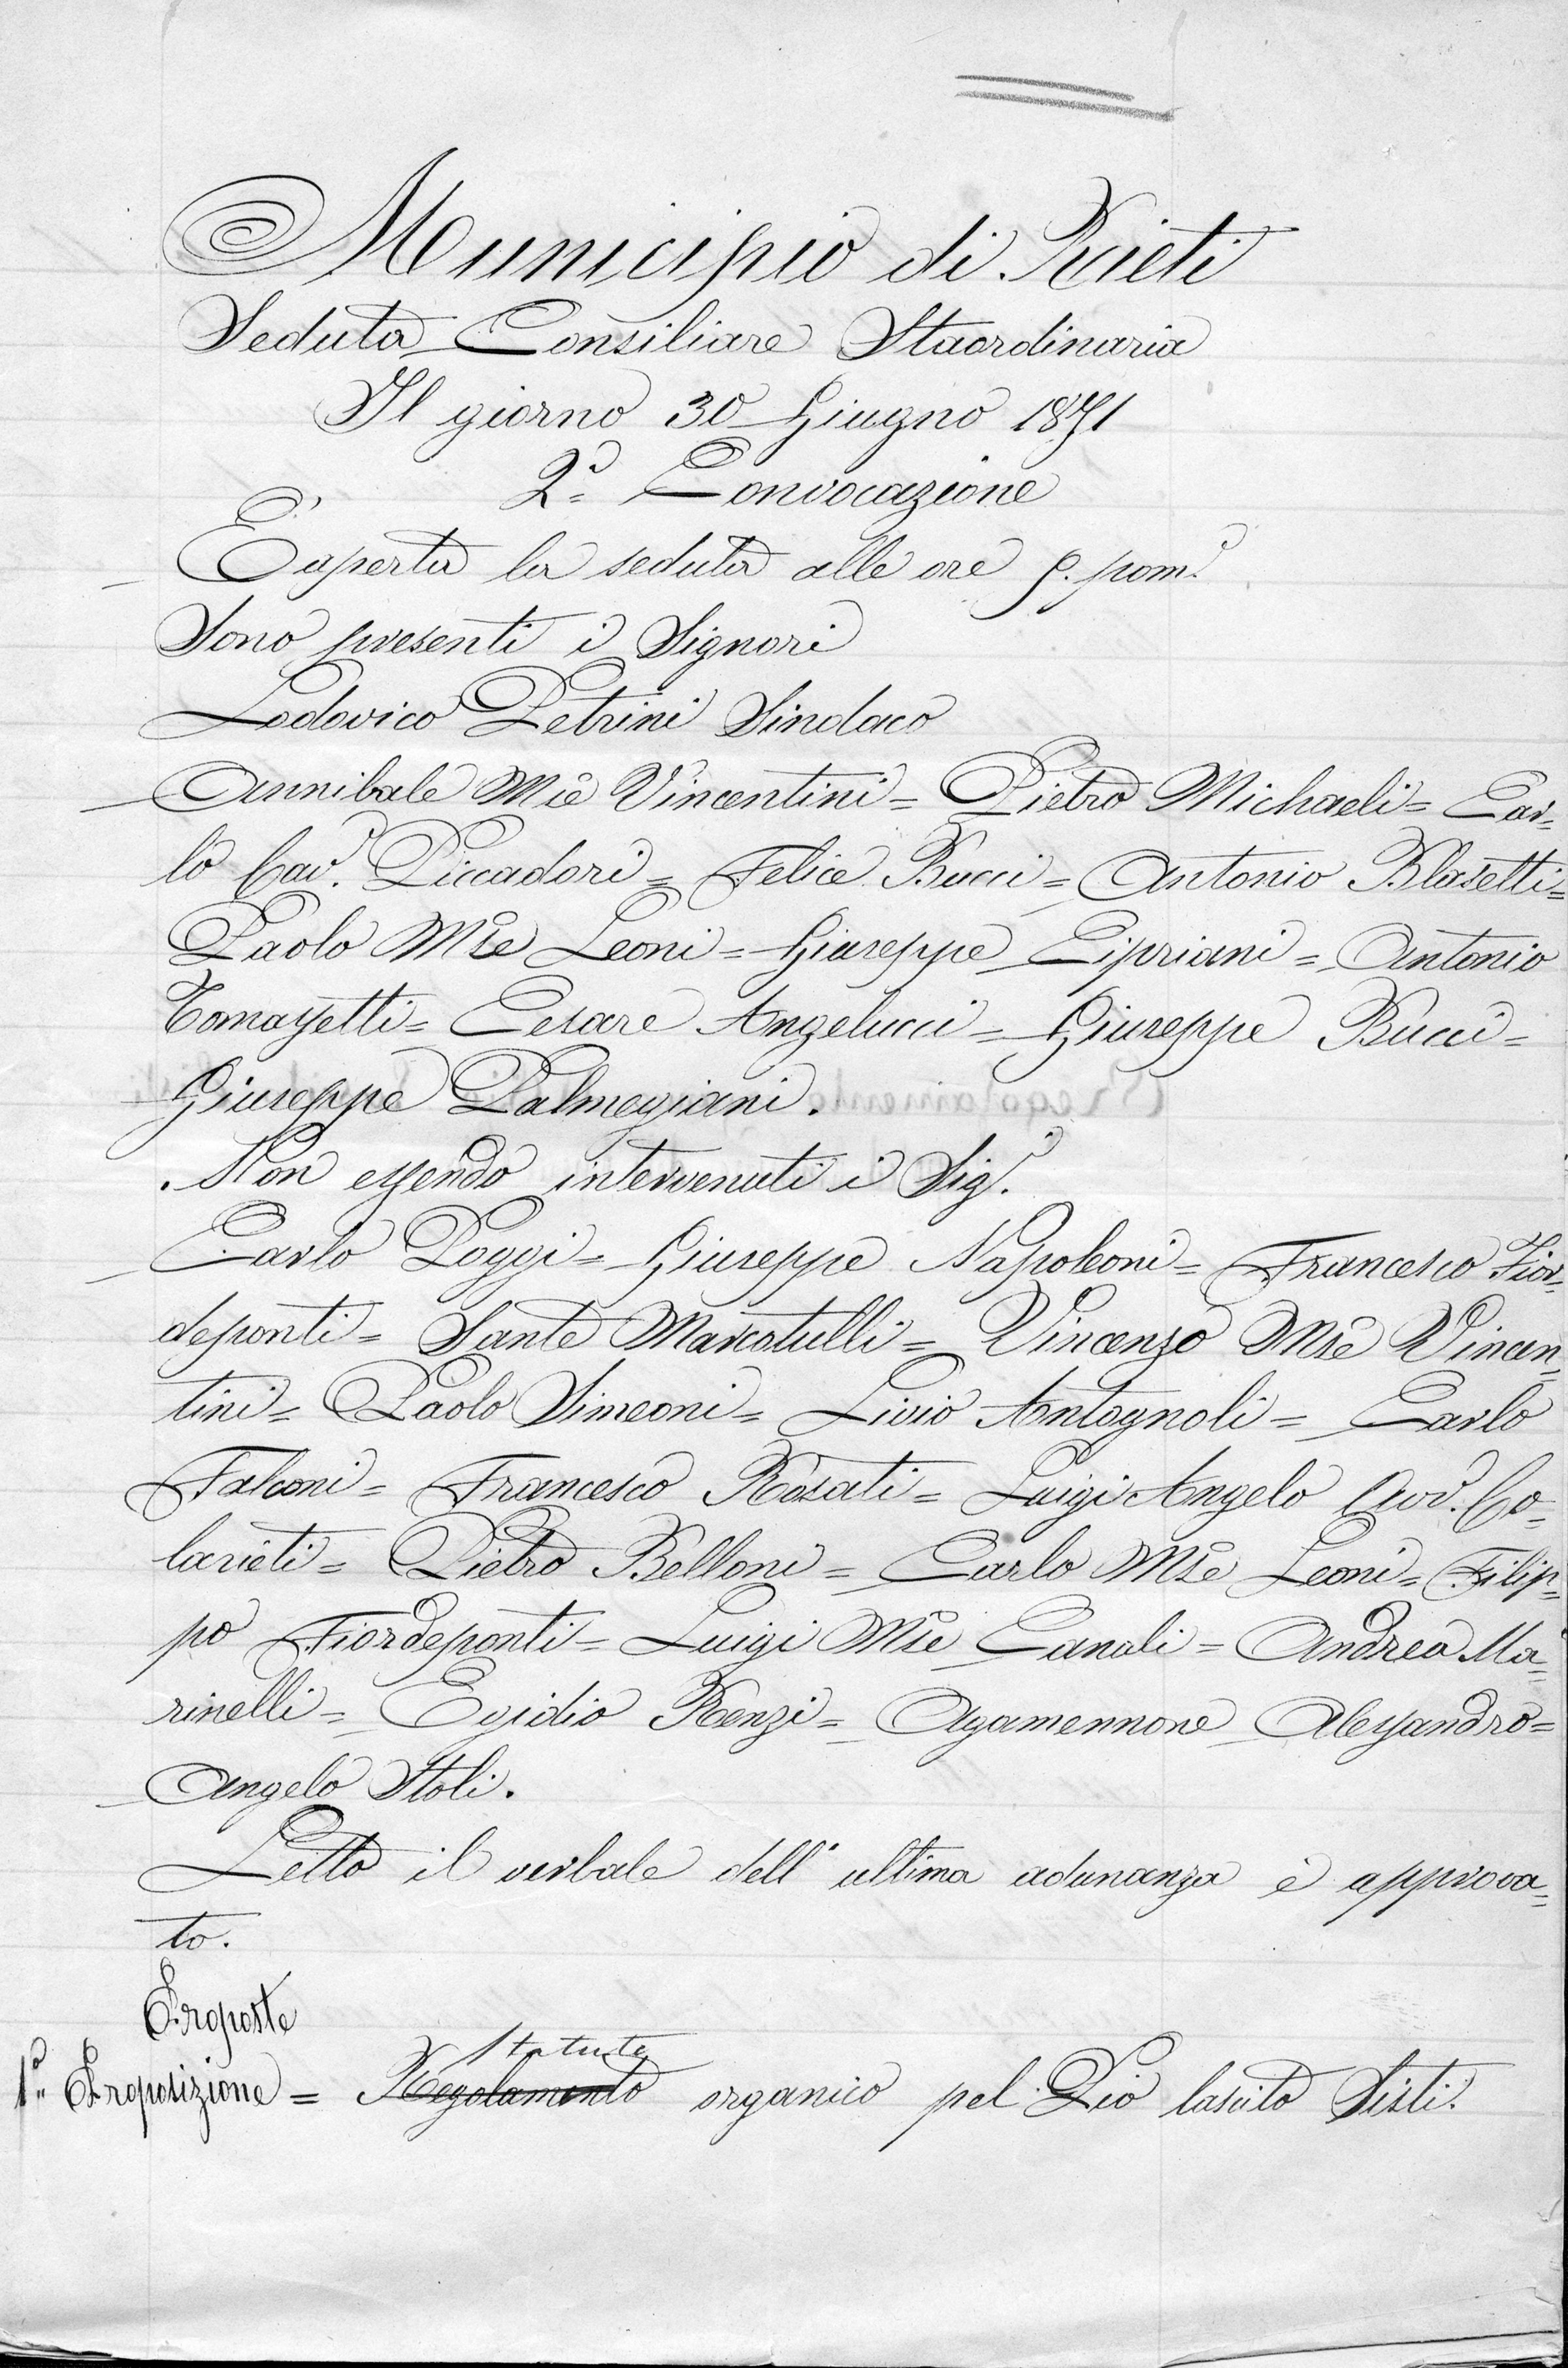 Municipio di Rieti
Seduta Consiliare Staordinaria
Il giorno 30 Giugno 1871
2ª Convocazione
E' aperta la seduta alle ore 9. pom.
Sono presenti i Signori
Lodovico Petrini Sindaco
Annibale Mse Vincentini = Pietro Michaeli = Car=
lo Cav. Piccadori = Felice Bucci = Antonio Blasetti =
Paolo Mse Leoni = Giuseppe Cipriani = Antonio
Tomassetti = Cesare Angelucci = Giuseppe Bucci =
Giuseppe Palmegiani.
Non essendo intervenuti i Sig.i
Carlo Poggi = Giuseppe Napoleoni = Francesco Fior=
deponti = Sante Marcotulli = Vincenzo Mse Vincen=
tini = Paolo Simeoni = Livio Antognoli = Carlo
Falconi = Francesco Rosati = Luigi Angelo Avv. Co=
larieti = Pietro Belloni = Carlo Mse Leoni = Filip=
po Fiordeponti = Luigi Mse Canali = Andrea Ma=
rinelli = Egidio Renzi = Agamennone Alessandro =
Angelo Stoli.
Letto il verbale dell' ultima adunanza è approva=
to.
Proposte
Statuto
1ª Proposizione = Regolamento organico pel Pio lascito Sisti.